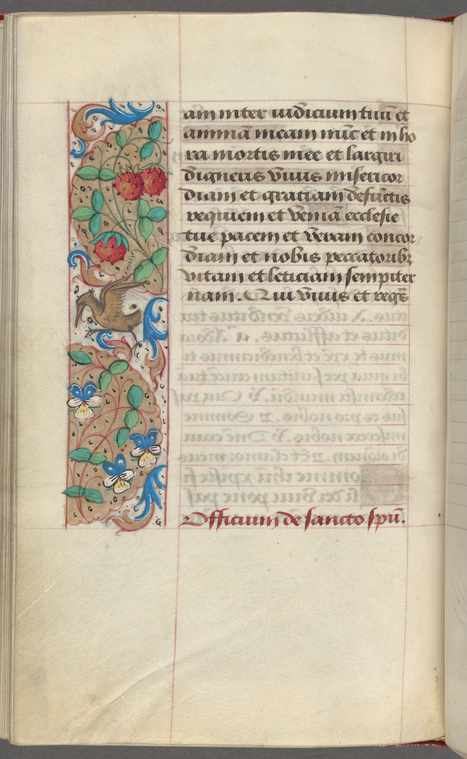 am inter iudicium tuū et
animā meam nūc et in ho
ra mortis mee et largiri
digneris viuis misericor
diam et gratiam defūctis
requiem et veniā ecclesie
tue pacem et veram concor
diam et nobis peccatoribꝫ
vitam et leticiam sempiter
nam. Qui viuis et regn̄s
Officium de sancto spū.